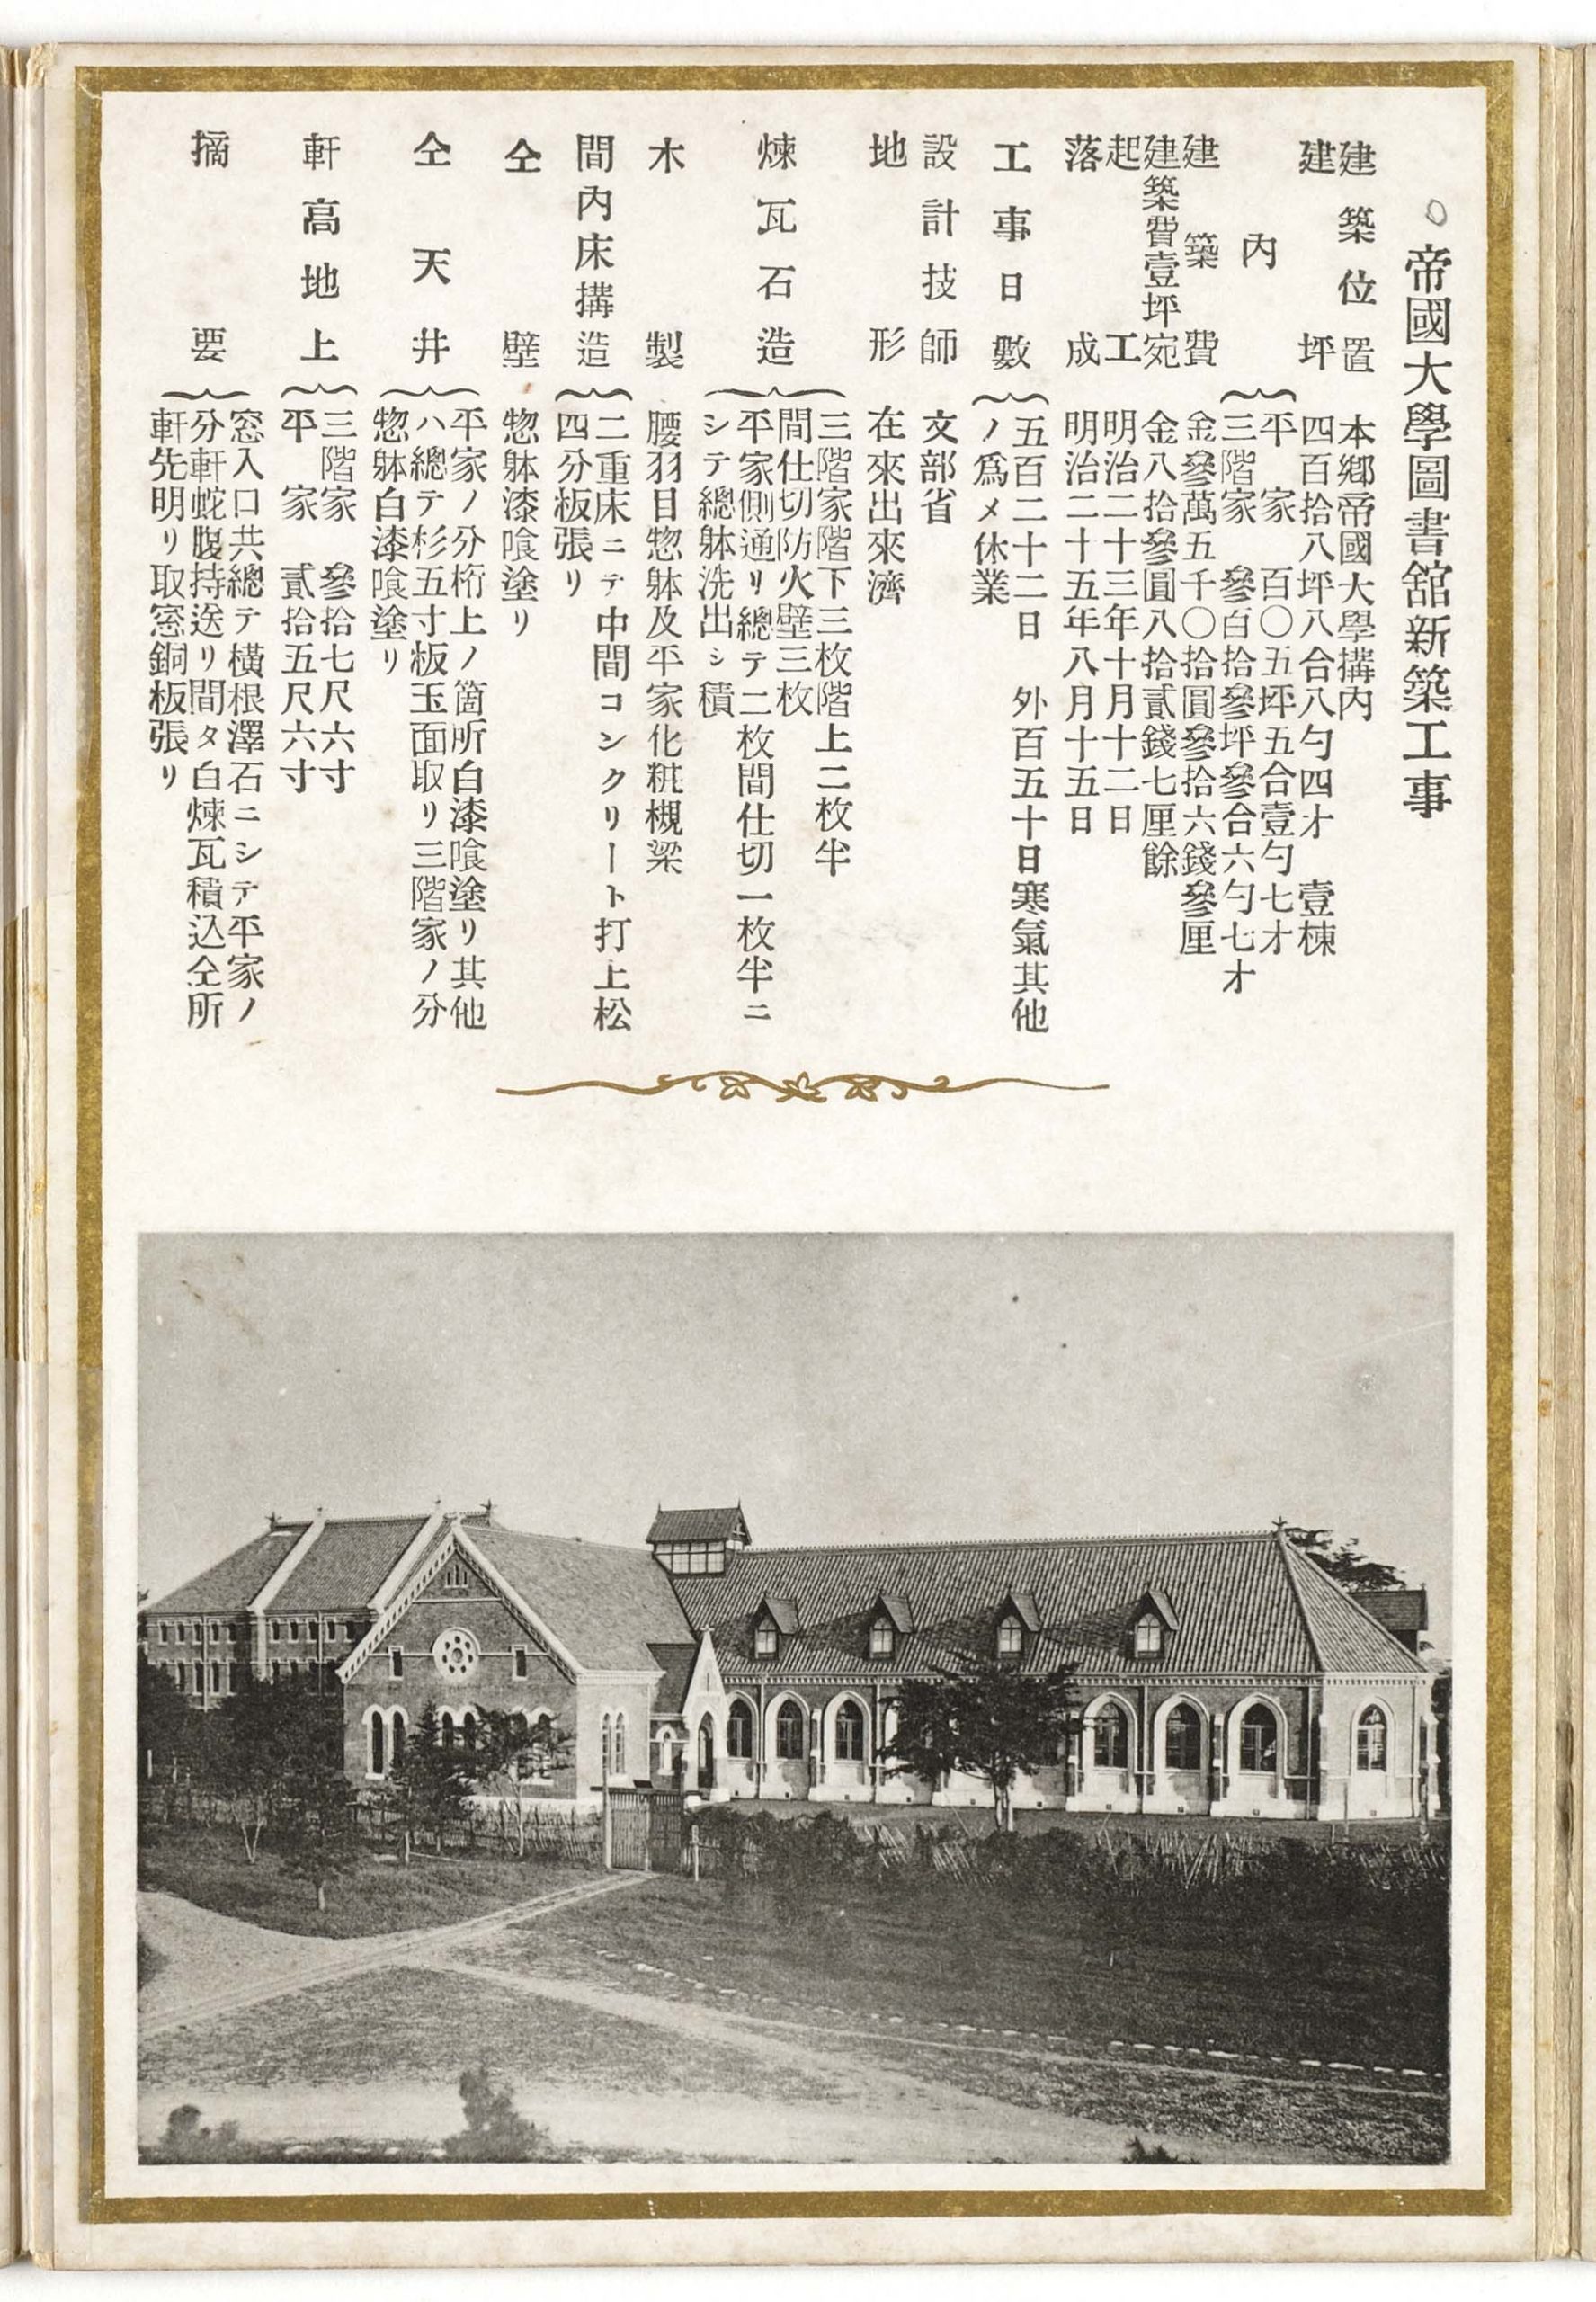 帝國大學圖書舘新築工事
建築位置　本鄕帝國大學搆内
建坪　四百拾八坪八合八勺四才　壹棟
内　平家　百〇五坪五合壹勺七才
三階家　參百拾參坪參合六勺七才
建築費　金參萬五千〇拾圓參拾六錢參厘
建築費壹坪宛　金八拾參圓八拾貳錢七厘餘
起工　明治二十三年十月十二日
落成　明治二十五年八月十五日
工事日數　五百二十二日　外百五十日寒氣其他
ノ爲メ休業
設計技師　文部省
地形　在來出來濟
煉瓦石造　三階家階下三枚階上二枚半
間仕切防火壁三枚
平家側通リ總テ二枚間仕切一枚半ニ
シテ總躰洗出シ積
木製　腰羽目惣躰及平家化粧槻梁
間内床搆造　二重床ニテ中間コンクリート打上松
四分板張リ
仝壁　惣躰漆喰塗リ
仝天井　平家ノ分桁上ノ箇所白漆喰塗リ其他
ハ總テ杉五寸板玉面取リ三階家ノ分
惣躰白漆喰塗リ
軒高地上　三階家　參拾七尺六寸
平家　貳拾五尺六寸
摘要　窓入口共總テ橫根澤石ニシテ平家ノ
分軒蛇腹持送リ間タ白煉瓦積込仝所
軒先明リ取窓銅板張リ